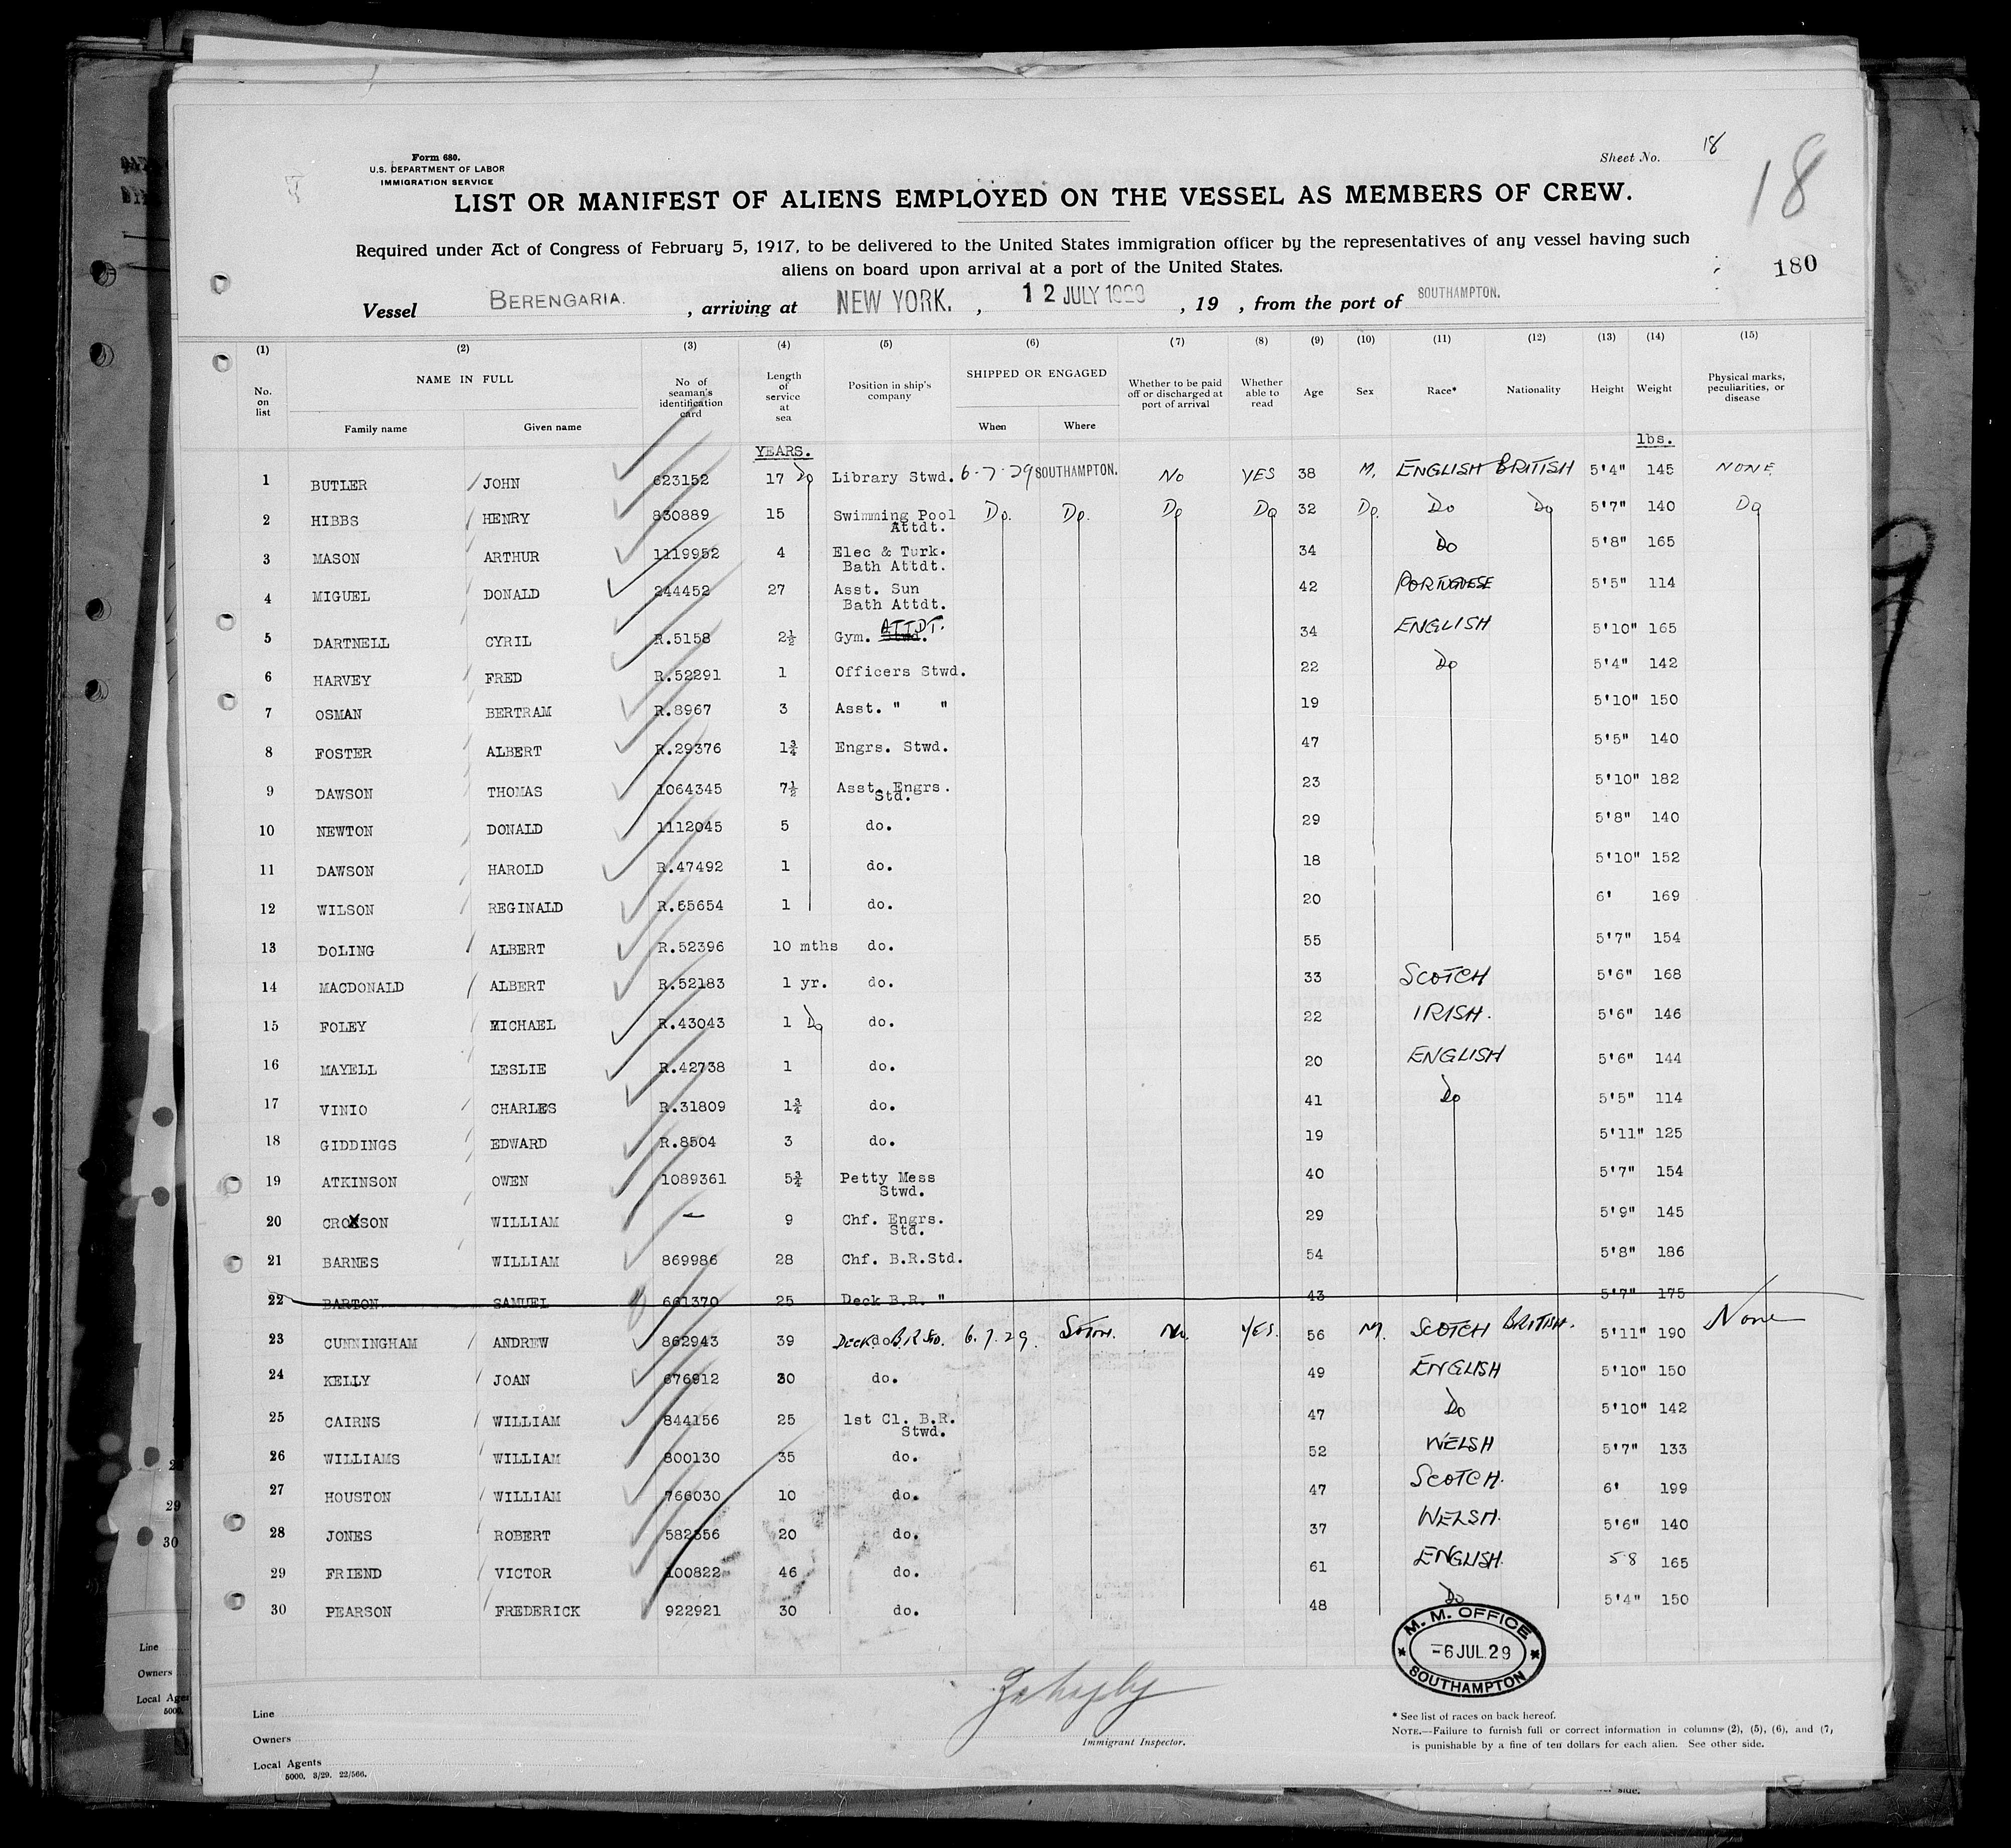 Form 680.
U.S. DEPARTMENT OF LABOR
IMMIGRATION SERVICE
Sheet No. 18
18
LIST OR MANIFEST OF ALIENS EMPLOYED ON THE VESSEL AS MEMBERS OF CREW.
Required under Act of Congress of February 5, 1917, to be delivered to the United States immigration officer by the representatives of any vessel having such
aliens on board upon arrival at a port of the United States.
180
Vessel BERENGARIA. , arriving at NEW YORK. , 12 JULY 1929 , 19 , from the port of SOUTHAMPTON.
(1) (2) (3) (4) (5) (6) (7) (8) (9) (10) (11) (12) (13) (14) (15)
No. on list NAME IN FULL Family name Given name No of seaman's identification card Length of service at sea Position in ship's company SHIPPED OR ENGAGED When Where Whether to be paid off or discharged at port of arrival Whether able to read Age Sex Race* Nationality Height Weight Physical marks, peculiarities, or disease
YEARS. lbs.
1 BUTLER JOHN 623152 17 Do Library Stwd. 6-7-29 SOUTHAMPTON. No YES 38 M. ENGLISH BRITISH 5'4" 145 NONE.
2 HIBBS HENRY 830889 15 Swimming Pool Attdt. Do. Do. Do Do 32 Do. Do Do 5'7" 140 Do
3 MASON ARTHUR 1119952 4 Elec & Turk. Bath Attdt. 34 Do 5'8" 165
4 MIGUEL DONALD 244452 27 Asst. Sun Bath Attdt. 42 PORTUGUESE 5'5" 114
5 DARTNELL CYRIL R.5158 2½ Gym. Stwd. ATTDT. 34 ENGLISH 5'10" 165
6 HARVEY FRED R.52291 1 Officers Stwd. 22 Do 5'4" 142
7 OSMAN BERTRAM R.8967 3 Asst. " " 19 5'10" 150
8 FOSTER ALBERT R.29376 1¾ Engrs. Stwd. 47 5'5" 140
9 DAWSON THOMAS 1064345 7½ Asst. Engrs. Std. 23 5'10" 182
10 NEWTON DONALD 1112045 5 do. 29 5'8" 140
11 DAWSON HAROLD R.47492 1 do. 18 5'10" 152
12 WILSON REGINALD R.65654 1 do. 20 6' 169
13 DOLING ALBERT R.52396 10 mths do. 55 5'7" 154
14 MACDONALD ALBERT R.52183 1 yr. do. 33 SCOTCH 5'6" 168
15 FOLEY MICHAEL R.43043 1 Do do. 22 IRISH. 5'6" 146
16 MAYELL LESLIE R.42738 1 do. 20 ENGLISH 5'6" 144
17 VINIO CHARLES R.31809 1¾ do. 41 Do 5'5" 114
18 GIDDINGS EDWARD R.8504 3 do. 19 5'11" 125
19 ATKINSON OWEN 1089361 5¾ Petty Mess Stwd. 40 5'7" 154
20 CROXSON WILLIAM — 9 Chf. Engrs. Std. 29 5'9" 145
21 BARNES WILLIAM 869986 28 Chf. B.R.Std. 54 5'8" 186
22 BARTON SAMUEL 661370 25 Deck B.R. " 43 5'7" 175
23 CUNNINGHAM ANDREW 862943 39 DECK do. B.R STD. 6.7.29. SOTON. No. YES. 56 M. SCOTCH BRITISH. 5'11" 190 None
24 KELLY JOAN 676912 30 do. 49 ENGLISH 5'10" 150
25 CAIRNS WILLIAM 844156 25 1st Cl. B.R. Stwd. 47 Do 5'10" 142
26 WILLIAMS WILLIAM 800130 35 do. 52 WELSH 5'7" 133
27 HOUSTON WILLIAM 766030 10 do. 47 SCOTCH. 6' 199
28 JONES ROBERT 582356 20 do. 37 WELSH. 5'6" 140
29 FRIEND VICTOR 100822 46 do. 61 ENGLISH. 5 8 165
30 PEARSON FREDERICK 922921 30 do. 48 Do 5'4" 150
M. M. OFFICE
-6 JUL.29
SOUTHAMPTON
Line
Owners
Local Agents
5000. 3/29. 22/566.
Immigrant Inspector.
* See list of races on back hereof.
NOTE.—Failure to furnish full or correct information in columns (2), (5), (6), and (7,
is punishable by a fine of ten dollars for each alien. See other side.
29
30
Line
Owners
Local Agen
5000.